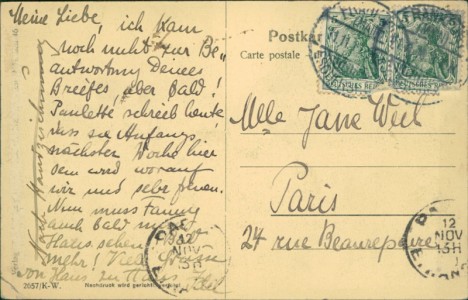 Meine Liebe, ich kam
noch nicht zur Be-
antwortung Deines
Briefes, aber bald!
Paulette schrieb heute,
dass sie Anfangs
nächster Woche hier
sein wird worauf
wir uns sehr freuen.
Nun muss Fanny
auch bald
sehen
mehr! Viele
von Haus zu Haus
2657/K-W.
Nachdruck wird gerichtlich verfolgt
Postkar
Carte postale
FRANKFURT
DEUTSCHES REICH
Mlle Jane Weil
Paris
24 rue Beaurepaire
12
NOV
15H
PARIS
12
NOV
15H